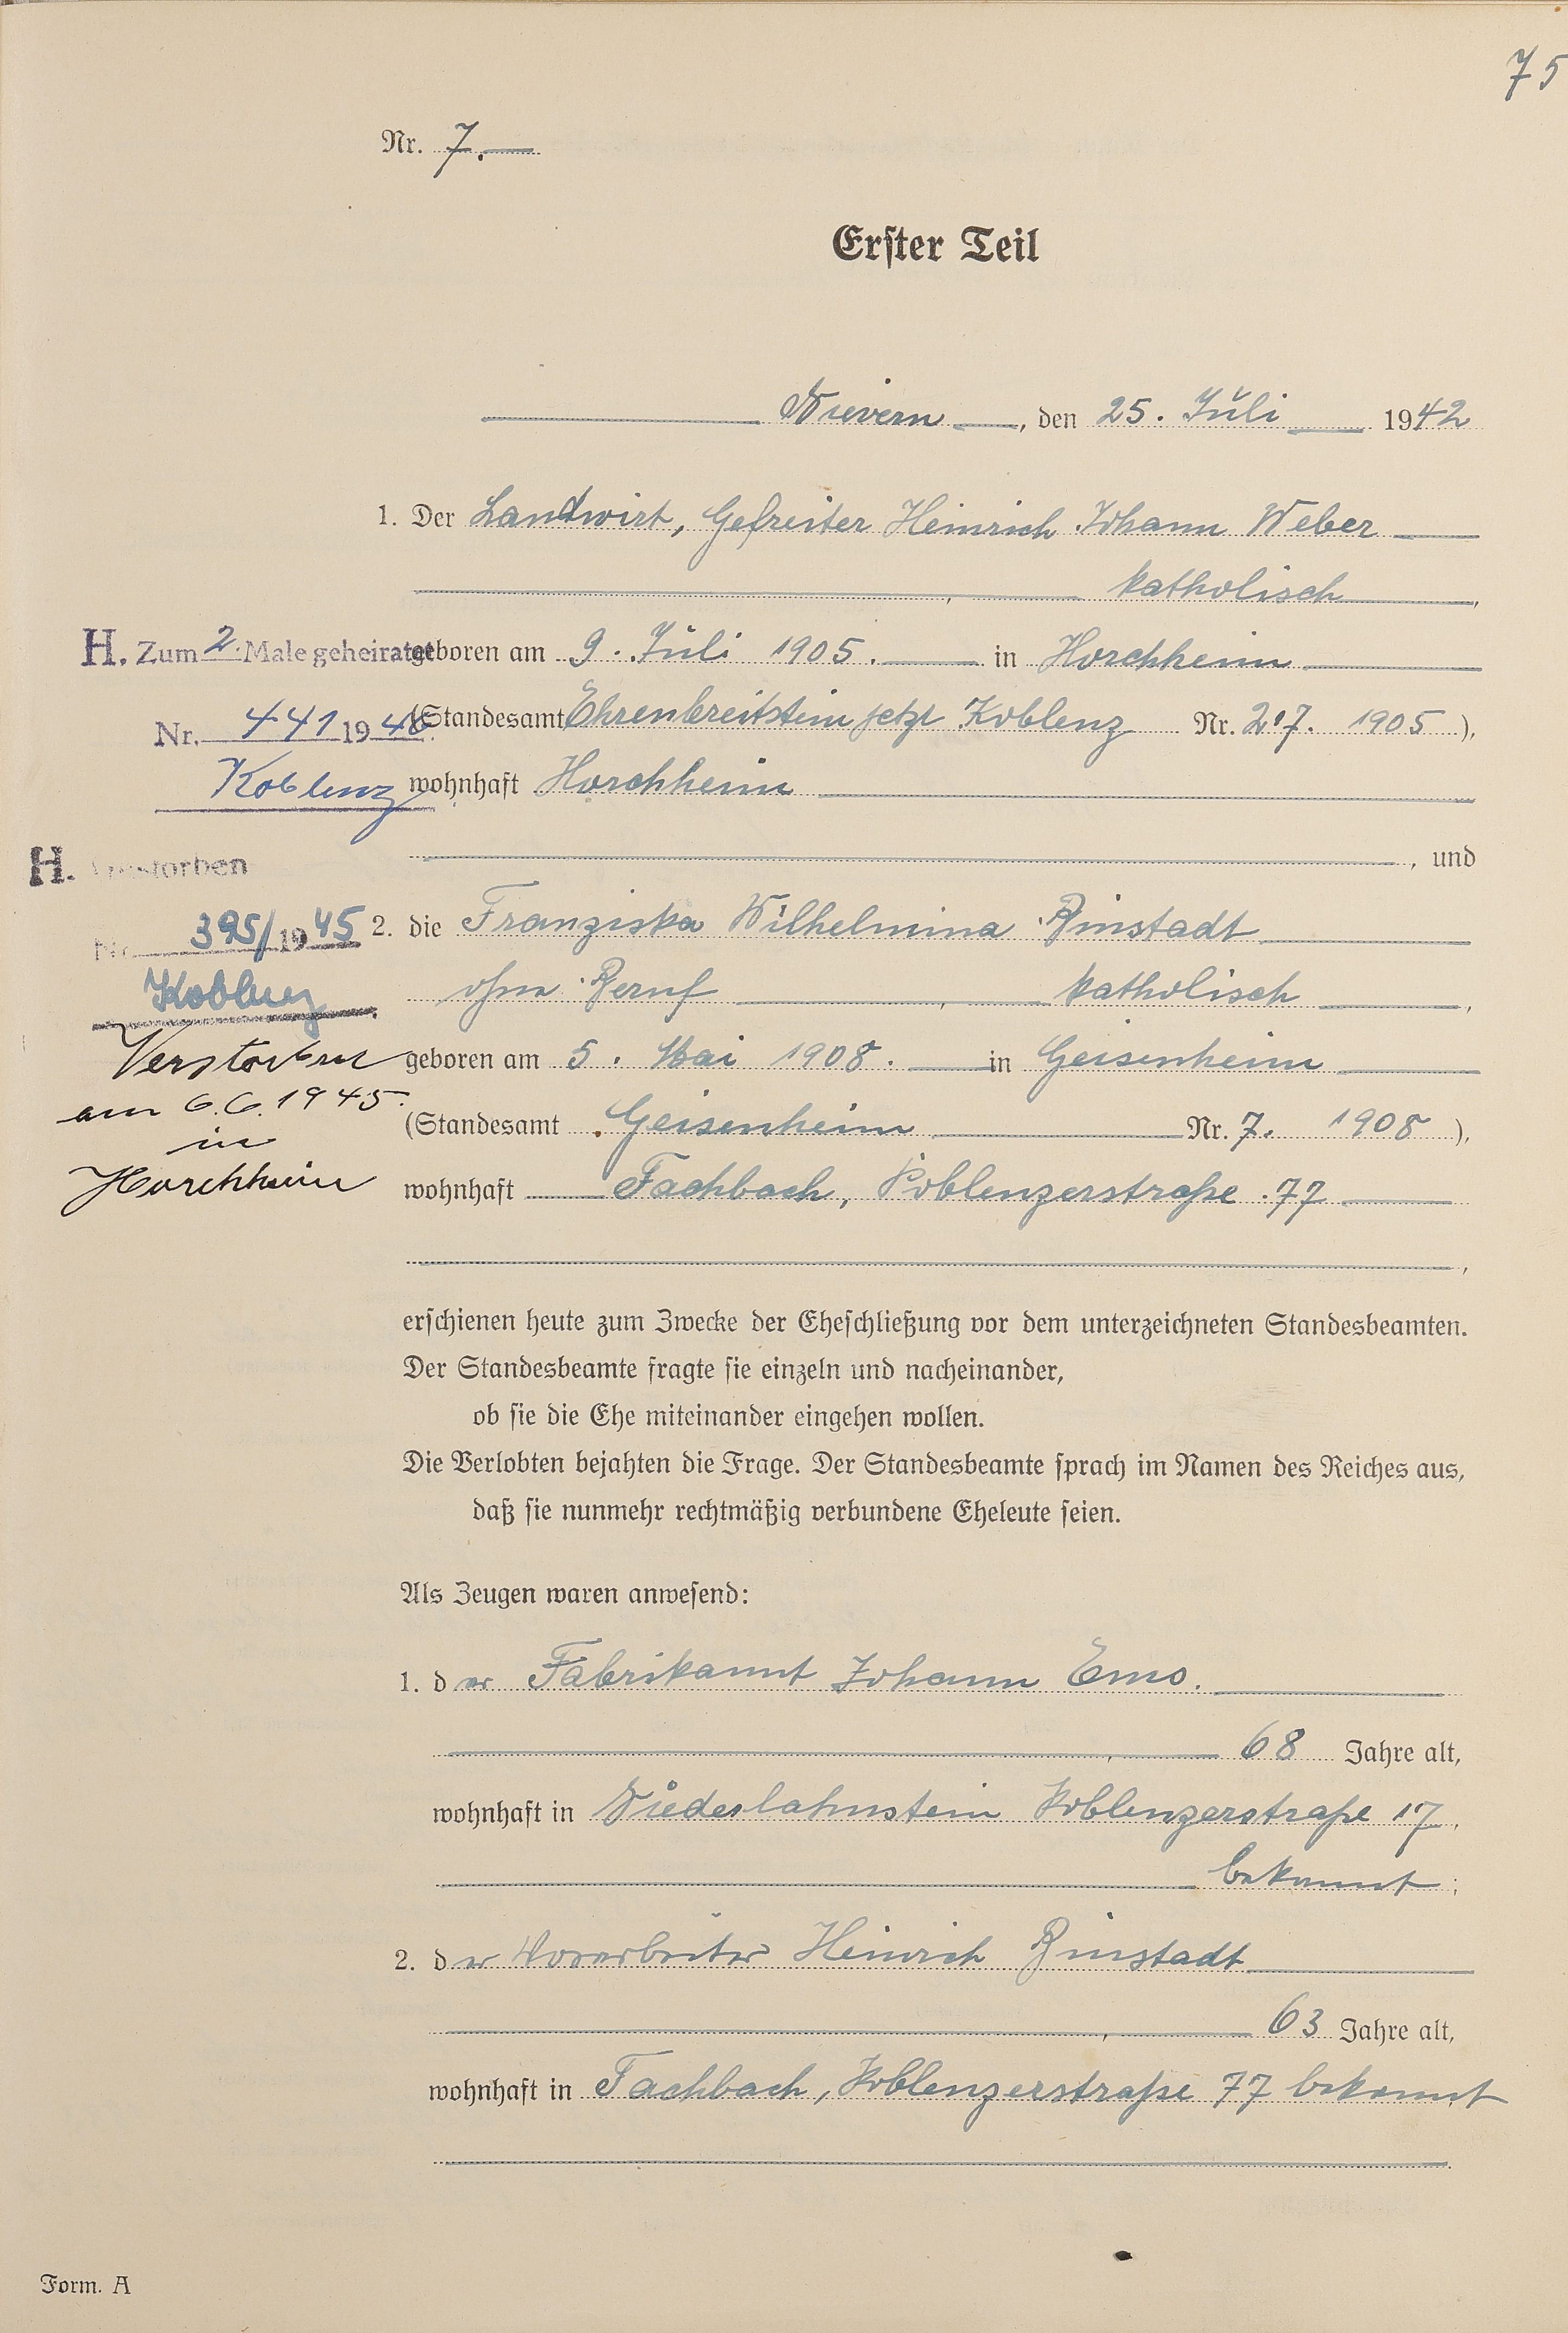 75
Nr. 7.
Erster Teil
Nievern, den 25. Juli 1942
1. Der Landwirt, Gefreiter Heinrich Johann Weber
katholisch,
geboren am 9. Juli 1905. in Horchheim
(Standesamt Ehrenbreitstein jetzt Koblenz Nr. 27. 1905),
wohnhaft Horchheim
, und
2. die Franziska Wilhelmina Rinstadt
ohne Beruf, katholisch,
geboren am 5. Mai 1908. in Geisenheim
(Standesamt Geisenheim Nr. 7. 1908),
wohnhaft Fachbach, Koblenzerstraße 77
,
H. Zum 2. Male geheiratet
Nr. 441 1946.
Koblenz
H. Verstorben
Nr. 395/1945
Koblenz.
Verstorben
am 6.6.1945.
in
Horchheim
erschienen heute zum Zwecke der Eheschließung vor dem unterzeichneten Standesbeamten.
Der Standesbeamte fragte sie einzeln und nacheinander,
ob sie die Ehe miteinander eingehen wollen.
Die Verlobten bejahten die Frage. Der Standesbeamte sprach im Namen des Reiches aus,
daß sie nunmehr rechtmäßig verbundene Eheleute seien.
Als Zeugen waren anwesend:
1. der Fabrikannt Johann Emo.
, 68 Jahre alt,
wohnhaft in Niederlahnstein Koblenzerstraße 17,
bekannt;
2. der Vorarbeiter Heinrich Rinstadt
, 63 Jahre alt,
wohnhaft in Fachbach, Koblenzerstraße 77 bekannt
.
Form. A